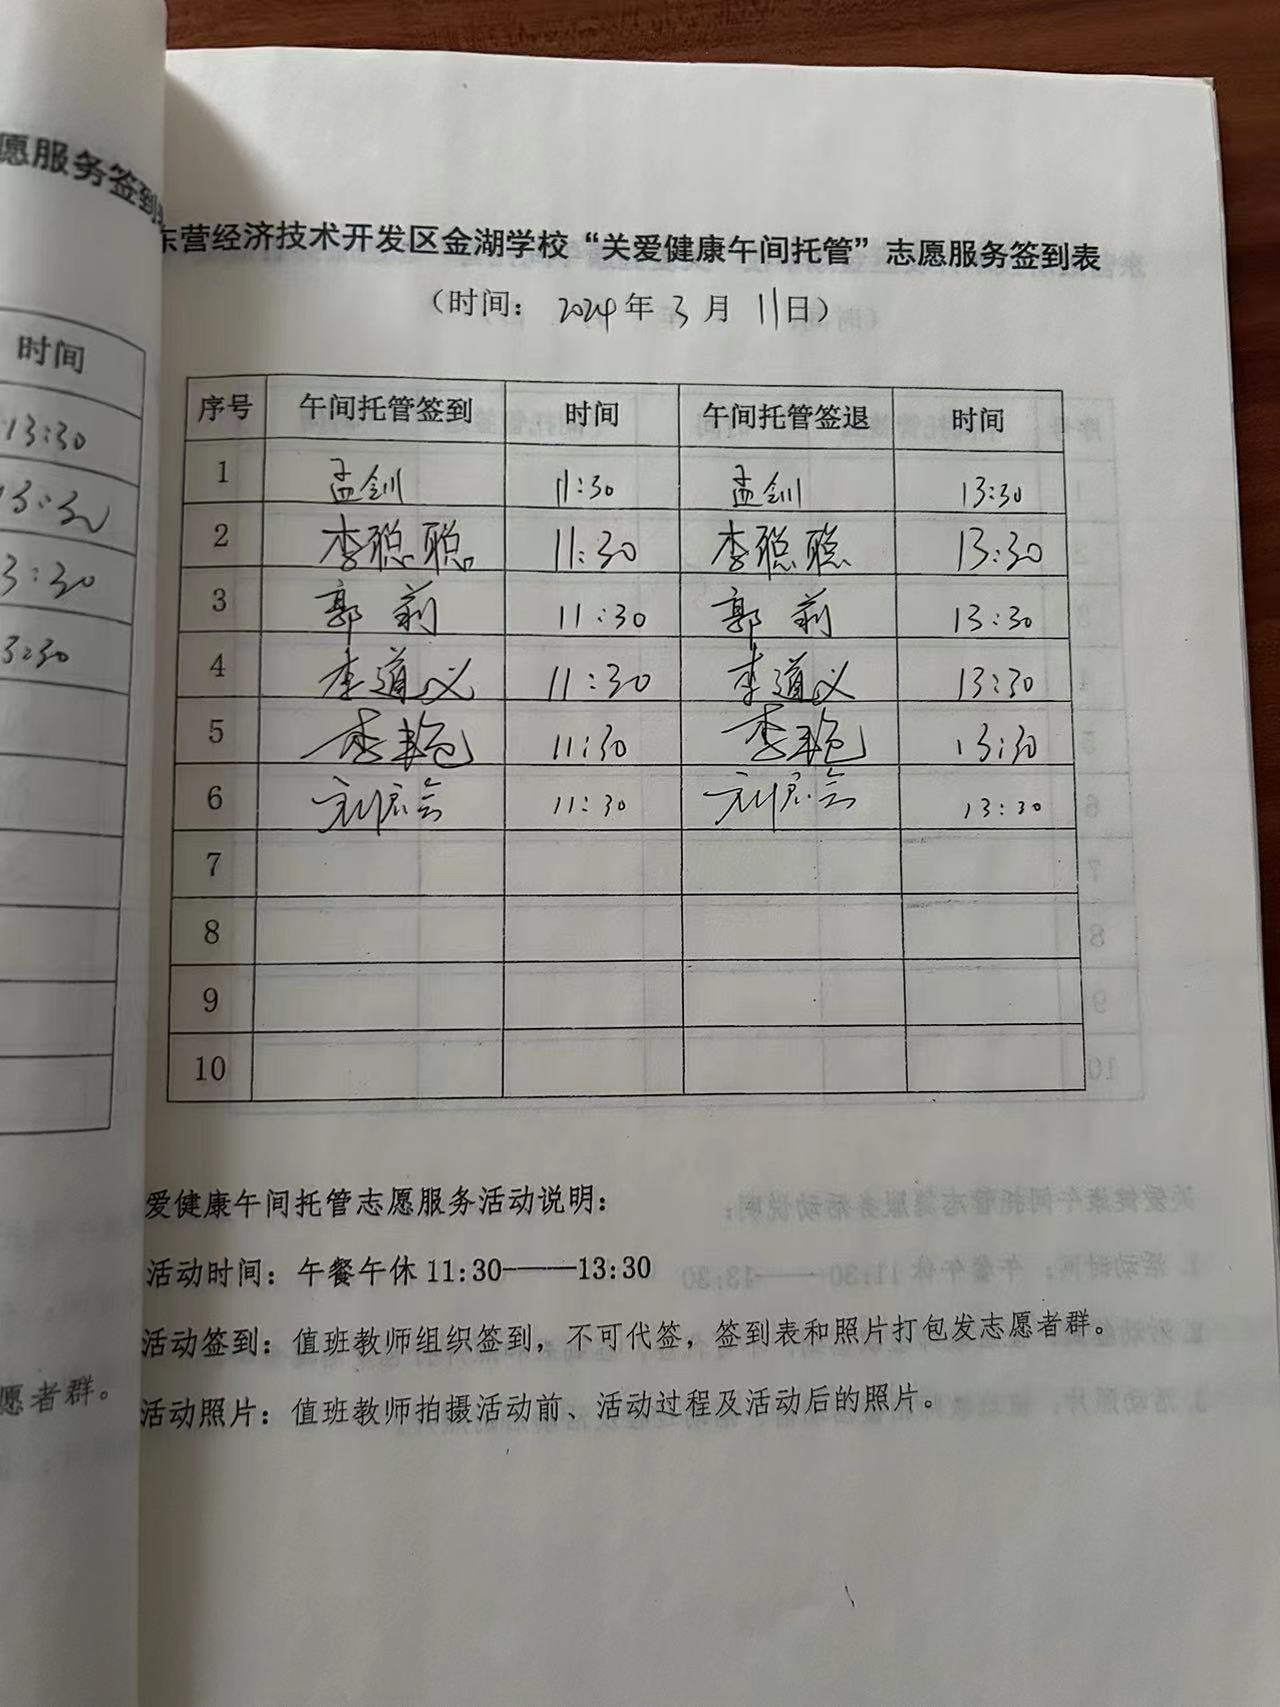 愿服务签到
时间
13:30
13:30
3:30
3:30
愿者群。
东营经济技术开发区金湖学校“关爱健康午间托管”志愿服务签到表
（时间： 2024年3月11日）
序号 午间托管签到 时间 午间托管签退 时间
1 孟钏 11:30 孟钏 13:30
2 李聪聪 11:30 李聪聪 13:30
3 郭莉 11:30 郭莉 13:30
4 李道义 11:30 李道义 13:30
5 李艳 11:30 李艳 13:30
6 11:30 13:30
7
8
9
10
爱健康午间托管志愿服务活动说明：
活动时间：午餐午休 11:30——13:30
活动签到：值班教师组织签到，不可代签，签到表和照片打包发志愿者群。
活动照片：值班教师拍摄活动前、活动过程及活动后的照片。